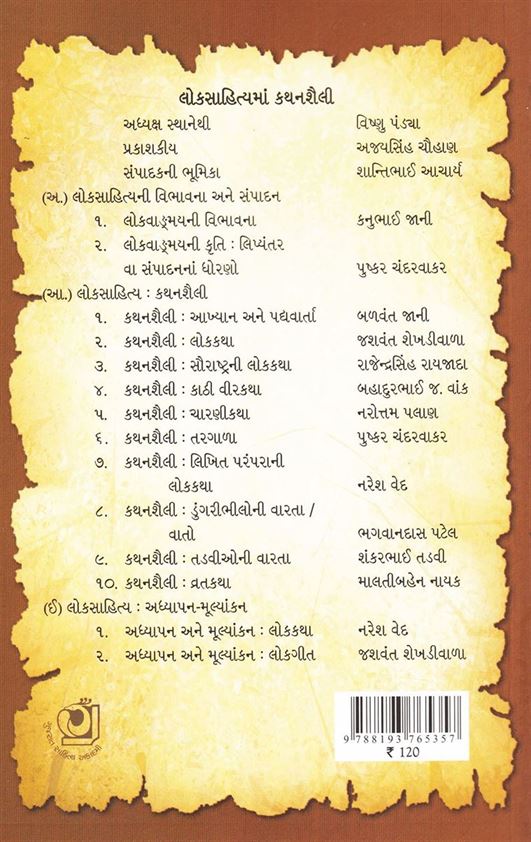 લોકસાહિત્યમાં કથનશૈલી
અધ્યક્ષ સ્થાનેથી વિષ્ણુ પંડ્યા
પ્રકાશકીય અજયસિંહ ચૌહાણ
સંપાદકની ભૂમિકા શાન્તિભાઈ આચાર્ય
(અ.) લોકસાહિત્યની વિભાવના અને સંપાદન
૧. લોકવાઙ્મયની વિભાવના કનુભાઈ જાની
૨. લોકવાઙ્મયની કૃતિ : લિપ્યંતર
વા સંપાદનનાં ધોરણો પુષ્કર ચંદરવાકર
(આ.) લોકસાહિત્ય : કથનશૈલી
૧. કથનશૈલી : આખ્યાન અને પદ્યવાર્તા બળવંત જાની
૨. કથનશૈલી : લોકકથા જશવંત શેખડીવાળા
૩. કથનશૈલી : સૌરાષ્ટ્રની લોકકથા રાજેન્દ્રસિંહ રાયજાદા
૪. કથનશૈલી : કાઠી વીરકથા બહાદુરભાઈ જ. વાંક
૫. કથનશૈલી : ચારણીકથા નરોત્તમ પલાણ
૬. કથનશૈલી : તરગાળા પુષ્કર ચંદરવાકર
૭. કથનશૈલી : લિખિત પરંપરાની
લોકકથા નરેશ વેદ
૮. કથનશૈલી : ડુંગરીભીલોની વારતા /
વાતો ભગવાનદાસ પટેલ
૯. કથનશૈલી : તડવીઓની વારતા શંકરભાઈ તડવી
૧૦. કથનશૈલી : વ્રતકથા માલતીબહેન નાયક
(ઈ) લોકસાહિત્ય : અધ્યાપન-મૂલ્યાંકન
૧. અધ્યાપન અને મૂલ્યાંકન : લોકકથા નરેશ વેદ
૨. અધ્યાપન અને મૂલ્યાંકન : લોકગીત જશવંત શેખડીવાળા
ગુજરાત સાહિત્ય અકાદમી
9 788193 765357
₹ 120